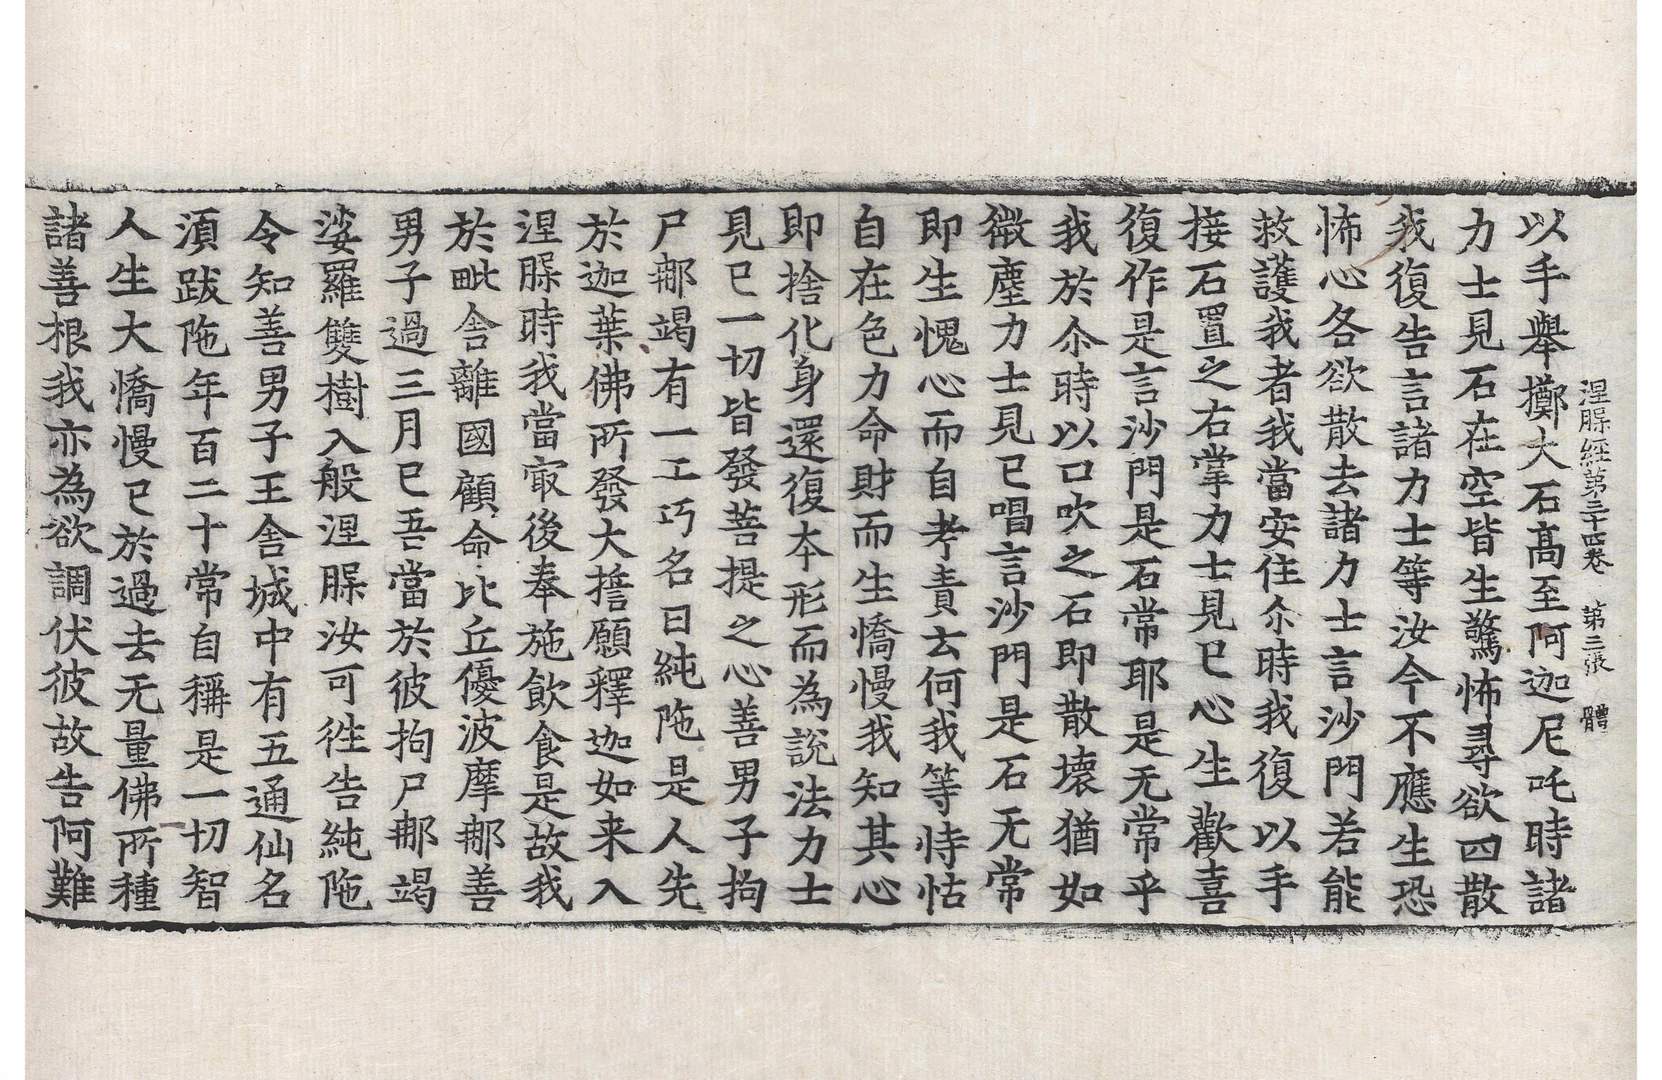 涅槃經第三十四卷　第三張　體
以手舉擲大石高至阿迦尼吒時諸
力士見石在空皆生驚怖尋欲四散
我復告言諸力士等汝今不應生恐
怖心各欲散去諸力士言沙門若能
救護我者我當安住尒時我復以手
接石置之右掌力士見已心生歡喜
復作是言沙門是石常耶是无常乎
我於尒時以口吹之石即散壞猶如
微塵力士見已唱言沙門是石无常
即生愧心而自考責云何我等恃怙
自在色力命財而生憍慢我知其心
即捨化身還復本形而為說法力士
見已一切皆發菩提之心善男子拘
尸那竭有一工巧名曰純陁是人先
於迦葉佛所發大誓願釋迦如来入
涅槃時我當㝡後奉施飲食是故我
於毗舍離國顧命比丘優波摩那善
男子過三月已吾當於彼拘尸那竭
娑羅雙樹入般涅槃汝可往告純陁
令知善男子王舍城中有五通仙名
湏跋陁年百二十常自稱是一切智
人生大憍慢已於過去无量佛所種
諸善根我亦為欲調伏彼故告阿難